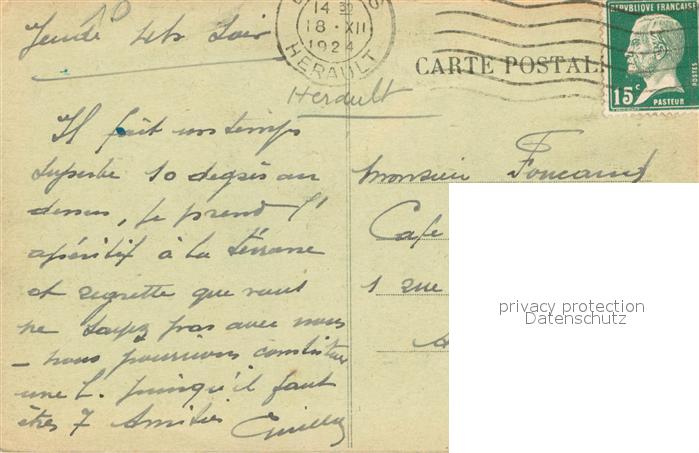 Jeudi 4 h. Soir
14 30
18 · XII
1924
HERAULT
REPUBLIQUE FRANÇAISE
15c
POSTES
PASTEUR
CARTE POSTALE
Herault
Il fait un temps
superbe 10 degrés au
dessus, je prend l'
apéritif à la terrasse
et regrette que vous
ne soyez pas avec nous
– nous pourrions constituer
une L. puisqu'il faut
être 7 Amitiés
Monsieur Foucaud
Cafe
1 rue
privacy protection
Datenschutz